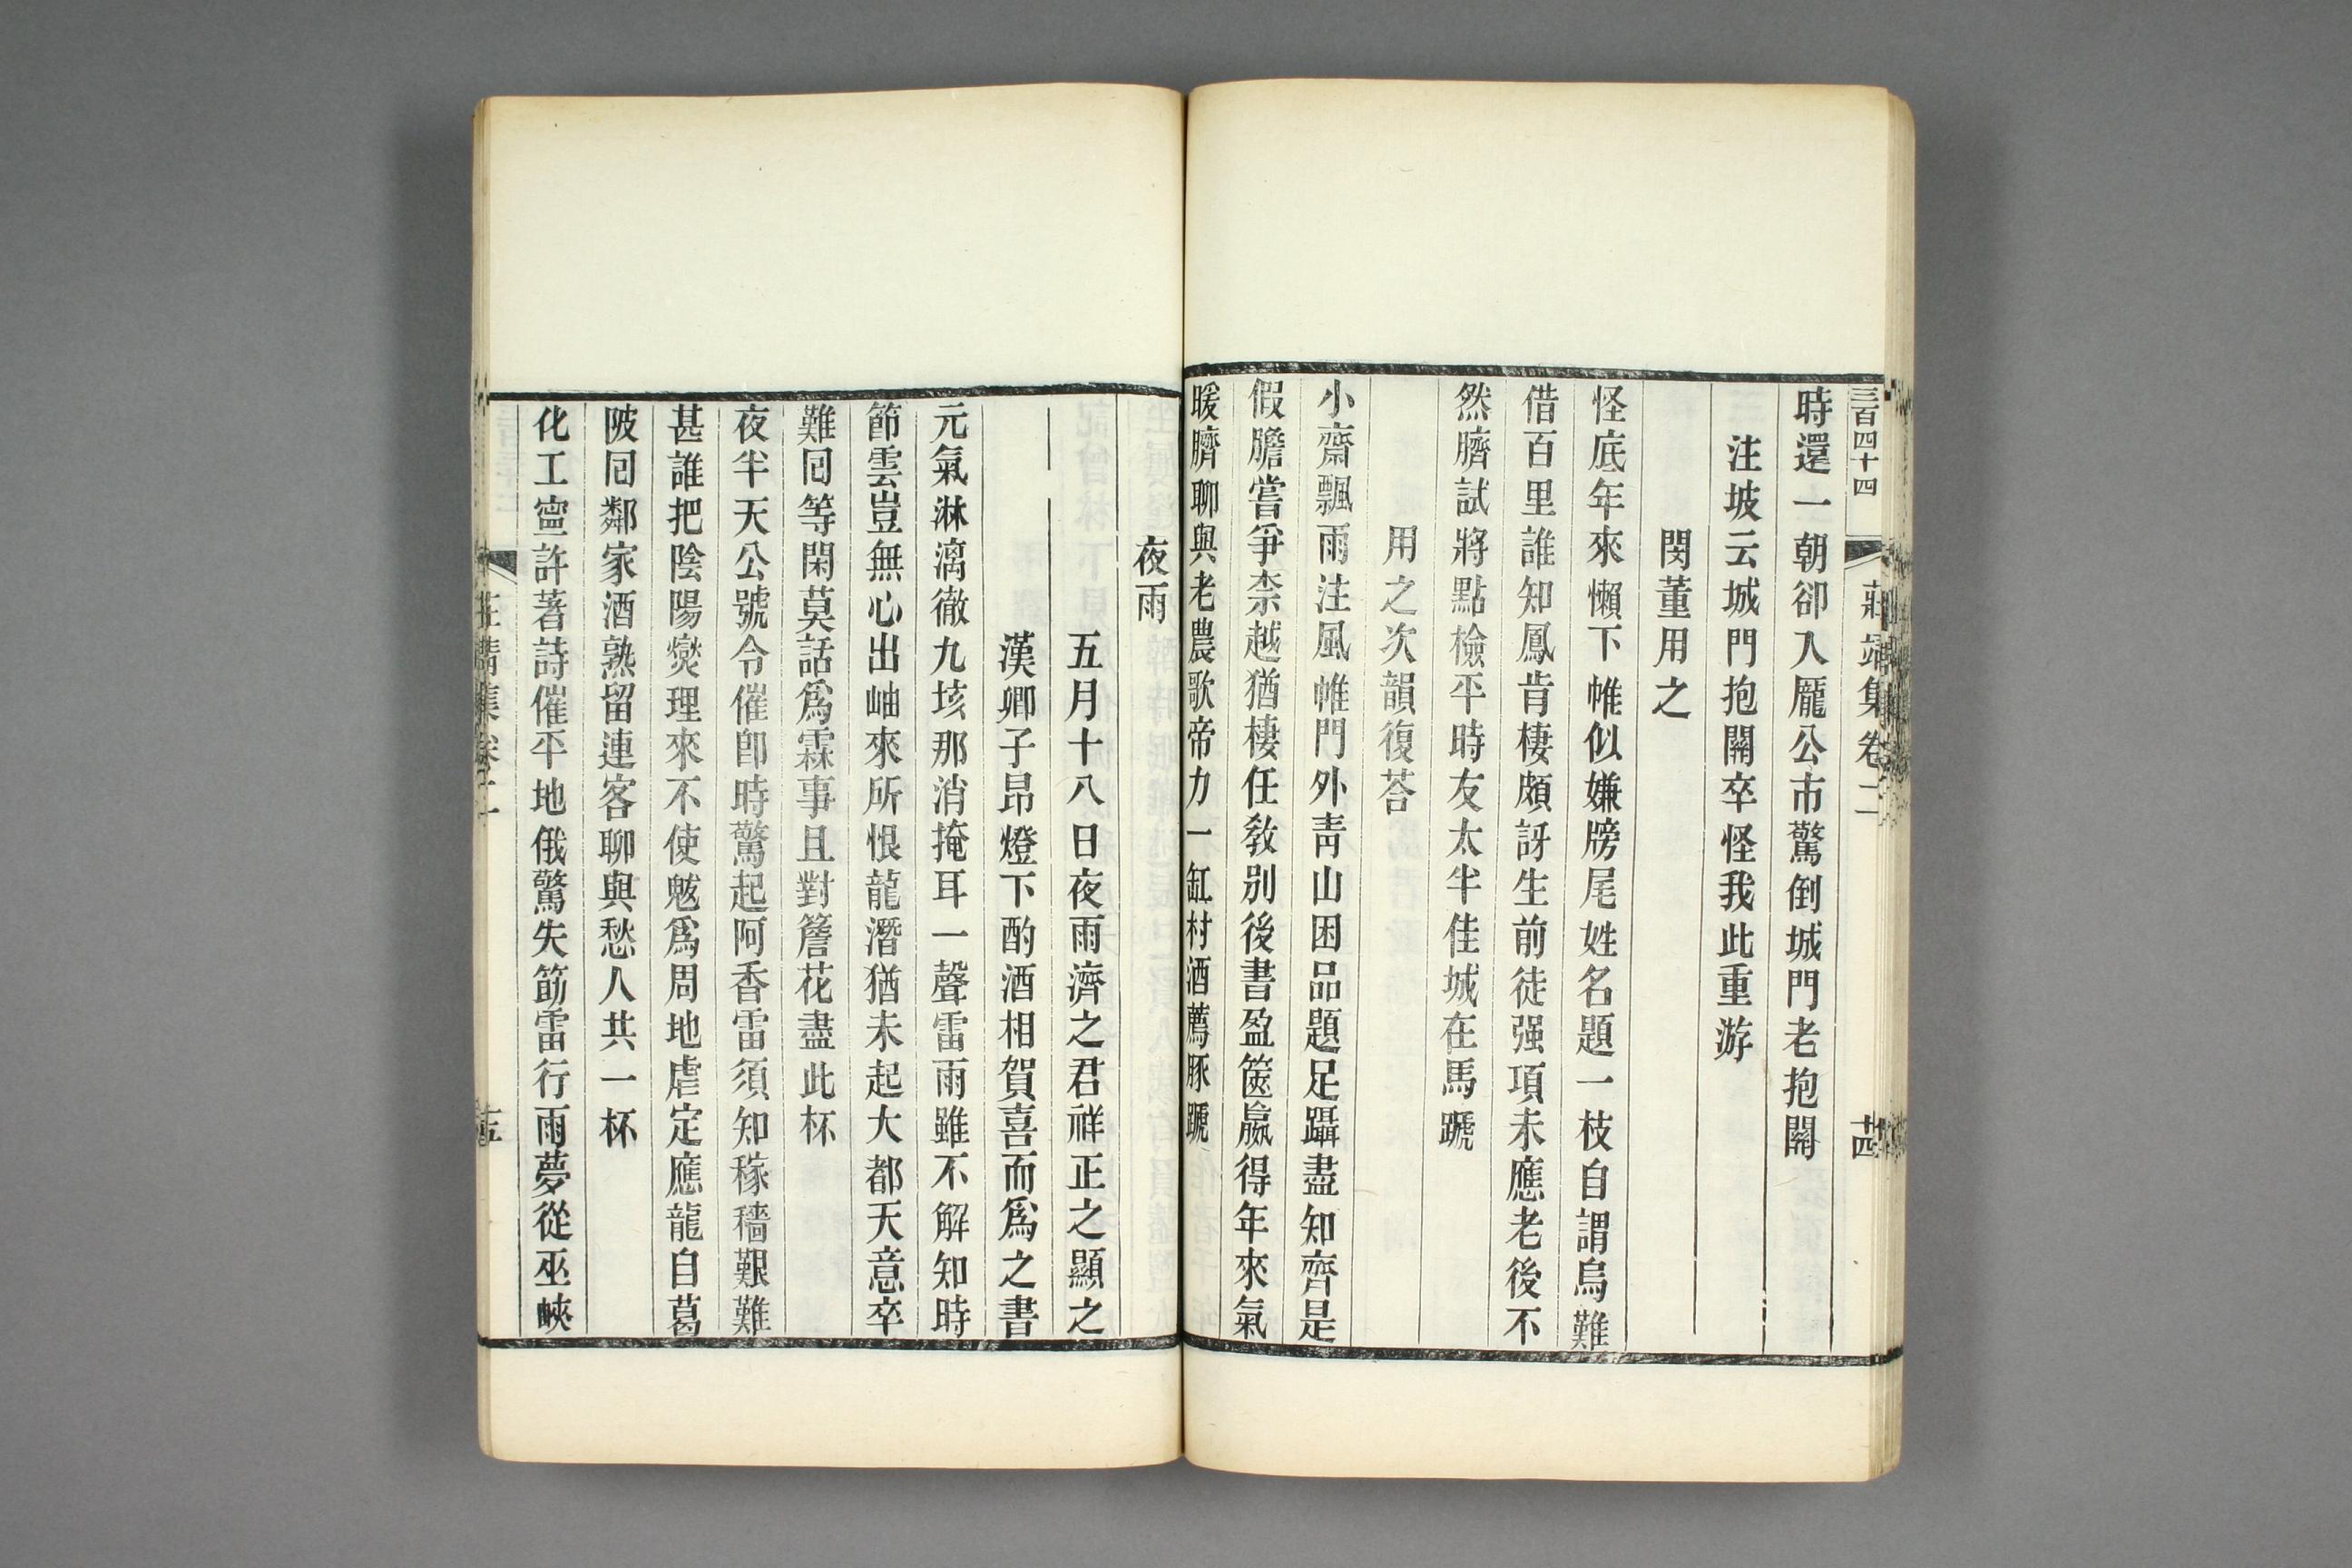 三百四十四
莊靖集卷二
卄四
時還一朝卻入龎公市驚倒城門老抱關
注坡云城門抱關卒怪我此重游
閔董用之
怪底年來懶下帷似嫌牓尾姓名題一枝自謂烏難
借百里誰知鳳肯棲頗訝生前徒强項未應老後不
然臍試將點檢平時友太半佳城在馬蹏
用之次韻復荅
小齋飄雨注風帷門外靑山困品題足躡盡知齊是
假膽嘗爭柰越猶棲任敎别後書盈篋羸得年來氣
暖臍聊與老農歌帝力一缸村酒薦豚蹏
夜雨
五月十八日夜雨濟之君祥正之顯之
漢卿子昂燈下酌酒相賀喜而爲之書
元氣淋漓徹九垓那消掩耳一聲雷雨雖不解知時
節雲豈無心出岫來所恨龍潛猶未起大都天意卒
難囘等閑莫話爲霖事且對簷花盡此杯
夜半天公號令催卽時驚起阿香雷須知稼穡艱難
甚誰把陰陽爕理來不使魃爲周地虐定應龍自葛
陂囘鄰家酒熟留連客聊與愁人共一杯
化工寍許著詩催平地俄驚失筯雷行雨夢從巫峽
莊靖集卷二